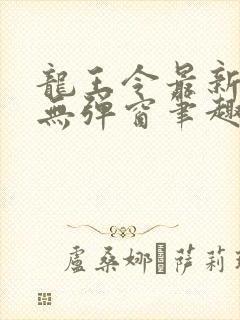 龍王令最新
無彈窗筆趣
盧桑娜 萨莉